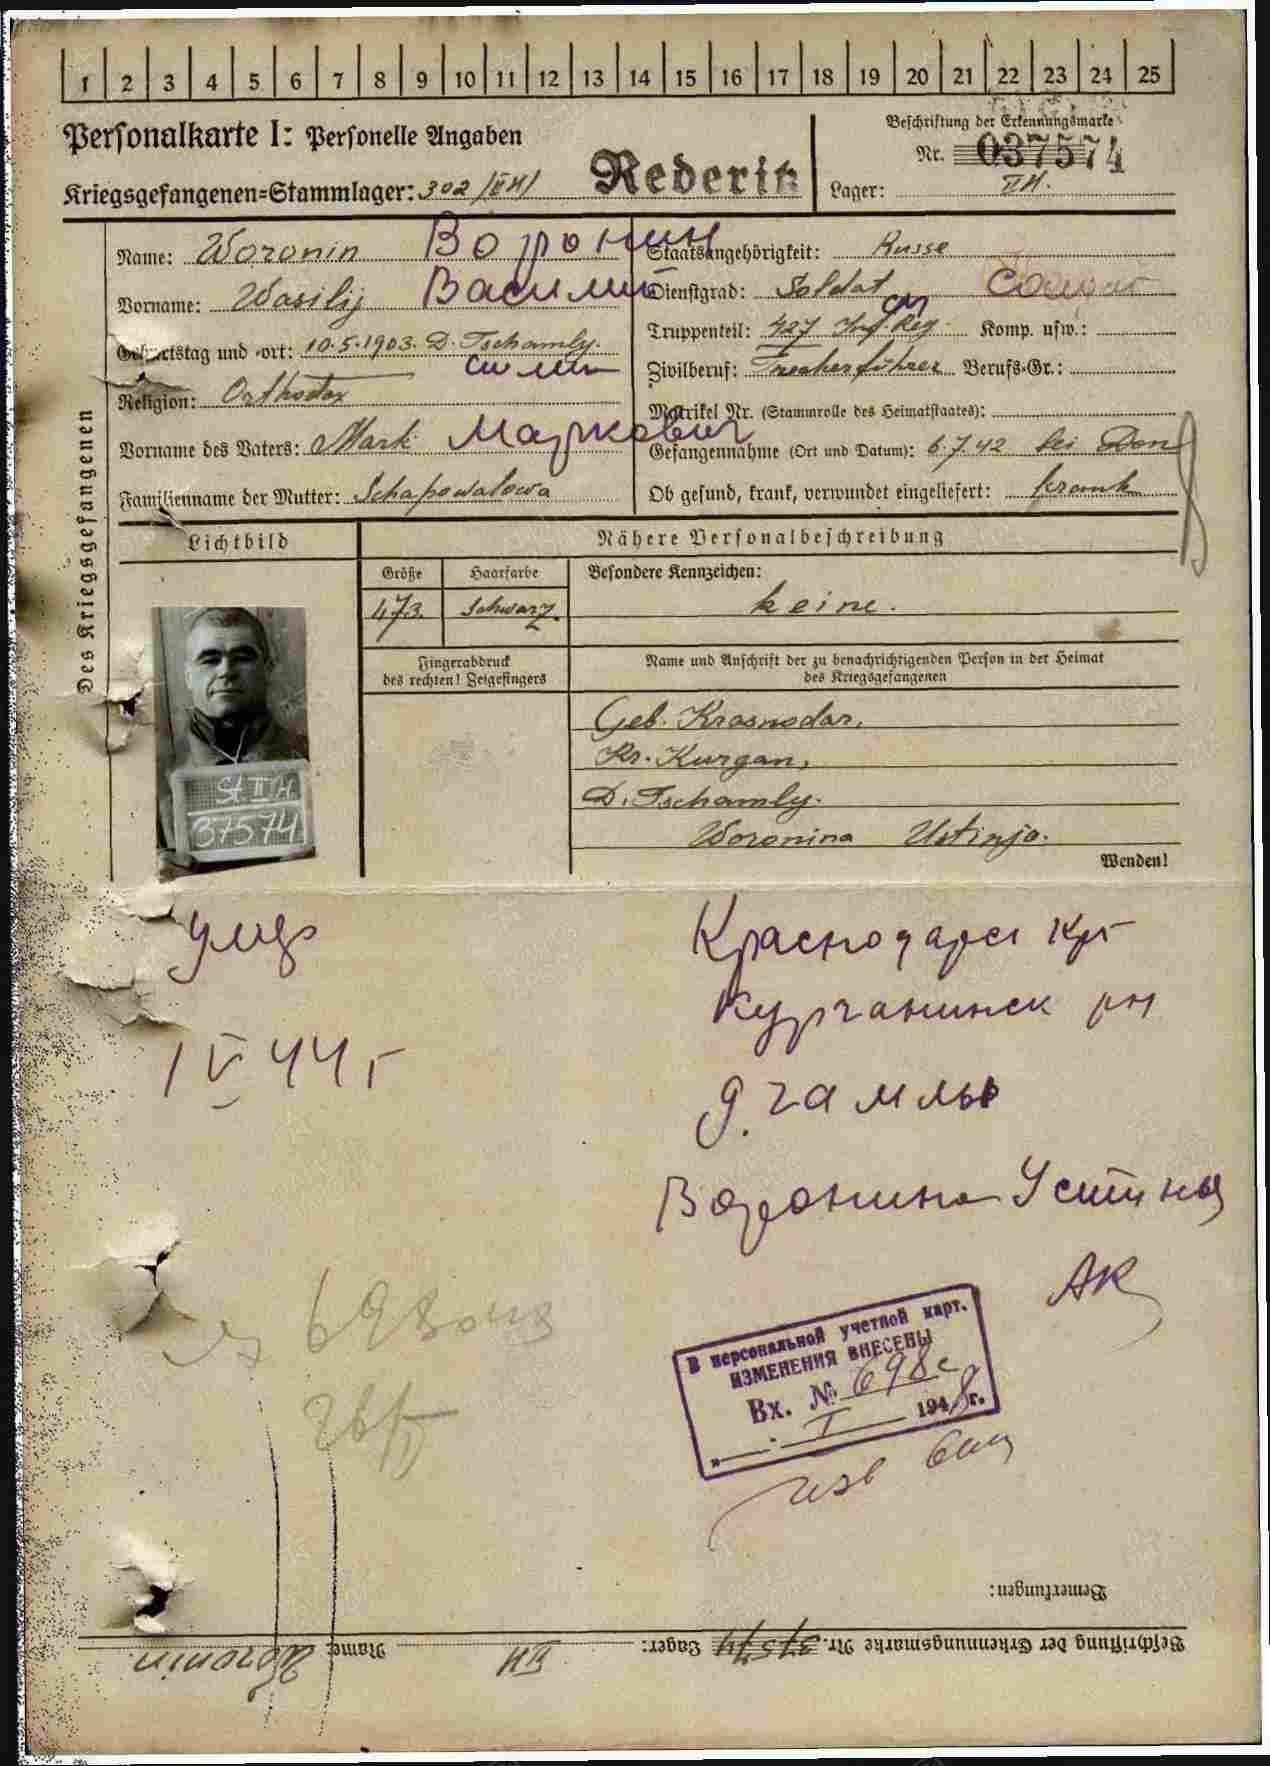 1 2 3 4 5 6 7 8 9 10 11 12 13 14 15 16 17 18 19 20 21 22 23 24 25
Personalkarte I: Personelle Angaben
Beschriftung der Erkennungsmarke
Nr. 037574
Kriegsgefangenen=Stammlager: 302 /II H/ Rederitz
Lager: II H.
Des Kriegsgefangenen
Name: Woronin Воронин
Vorname: Wasilij Василий
Geburtstag und =ort: 10.5.1903. D. Tschamly.
Religion: Orthodox
Vorname des Vaters: Mark Маркович
Familienname der Mutter: Schapowalowa
Staatsangehörigkeit: Russe
Dienstgrad: Soldat Солдат
Truppenteil: 427 Inf. Reg. Komp. usw.:
Zivilberuf: Berufs=Gr.:
Matrikel Nr. (Stammrolle des Heimatstaates):
Gefangennahme (Ort und Datum): 6.7.42 bei Don
Ob gesund, krank, verwundet eingeliefert: krank
Lichtbild
Nähere Personalbeschreibung
Größe
Haarfarbe
Besondere Kennzeichen:
173.
Schwarz.
keine.
Fingerabdruck
des rechten! Zeigefingers
Name und Anschrift der zu benachrichtigenden Person in der Heimat
des Kriegsgefangenen
Geb. Krasnodar,
Kr. Kurgan,
D. Tschamly.
Woronina Ustinja.
Wenden!
St II H
37574
Краснодарск кр
Курганинск рн
д. Чамлы
Воронина Устинья
IV 44 г
АК
В персональной учетной карт.
ИЗМЕНЕНИЯ ВНЕСЕНЫ
Вх. № 698с
„ . I 1948г.
Bemerkungen:
Beschriftung der Erkennungsmarke Nr. 37574 Lager: II H Name: Woronin